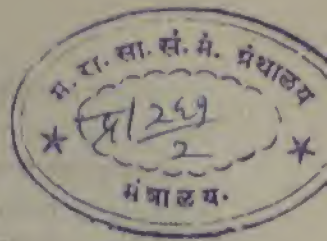 म. रा. सा. सं. मं. ग्रंथालय
269
2
मंत्रालय.